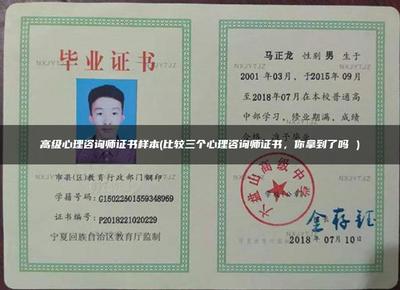 毕业证书
NXJYTJZ
NXJYTJZ
市县(区)教育行政部门钢印
学籍号码: G15022801559348969
证书编号: P2018221020229
宁夏回族自治区教育厅监制
马正龙 性别 男 生于
2001 年 03月, 于2015年 09月
至2018年07月在本校普通高
中部学习, 修业期满, 成绩
合格, 准予毕业
高级心理咨询师证书样本(比较三个心理咨询师证书，你拿到了吗 )
六盘山高级中学
2018 年 07月 10日